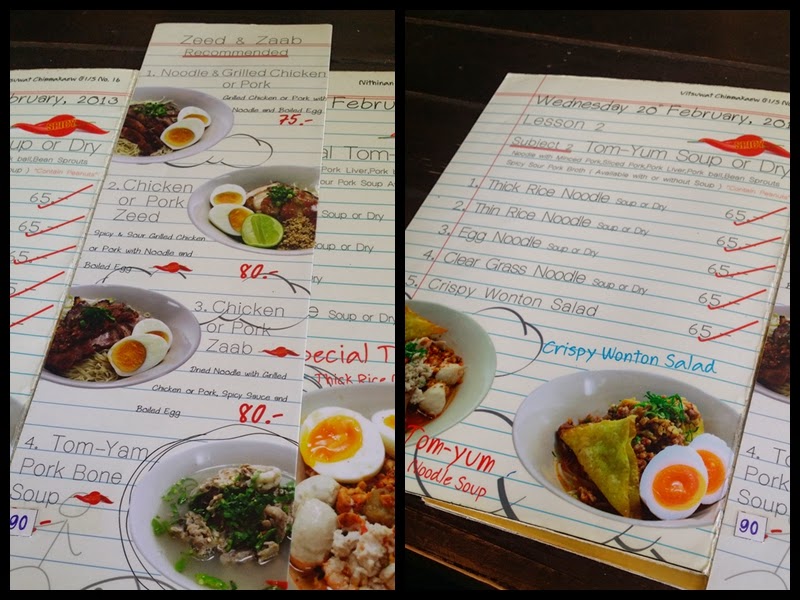 Zeed & Zaab
Recommended
1. Noodle & Grilled Chicken
or Pork
Grilled Chicken or Pork with
Noodle and Boiled Egg
75.-
2. Chicken
or Pork
Zeed
Spicy & Sour Grilled Chicken
or Pork with Noodle and
Boiled Egg
80.-
3. Chicken
or Pork
Zaab
Dried Noodle with Grilled
Chicken or Pork, Spicy Sauce and
Boiled Egg
80.-
4. Tom-Yam
Pork Bone
Soup
90.-
No. 16
bruary, 2013
up or Dry
Bean Sprouts
oup ) "Contain Peanuts"
65
65
65
65
Nithinan
Febru
al Tom-
Pork Liver, Pork
our Pork Soup
Soup or Dry
oup or Dry
Soup or Dry
pecial T
Thick Rice
Wednesday 20th February, 201
Lesson 2
Subject 2 Tom-Yum Soup or Dry
Noodle with Minced Pork, Sliced Pork, Pork Liver, Pork ball, Bean Sprouts
Spicy Sour Pork Broth ( Available with or without Soup ) "Contain Peanuts"
1. Thick Rice Noodle Soup or Dry 65
2. Thin Rice Noodle Soup or Dry 65
3. Egg Noodle Soup or Dry 65
4. Clear Grass Noodle Soup or Dry 65
5. Crispy Wonton Salad 65
Crispy Wonton Salad
Tom-yum
Noodle Soup
4. To
Pork
Soup
90